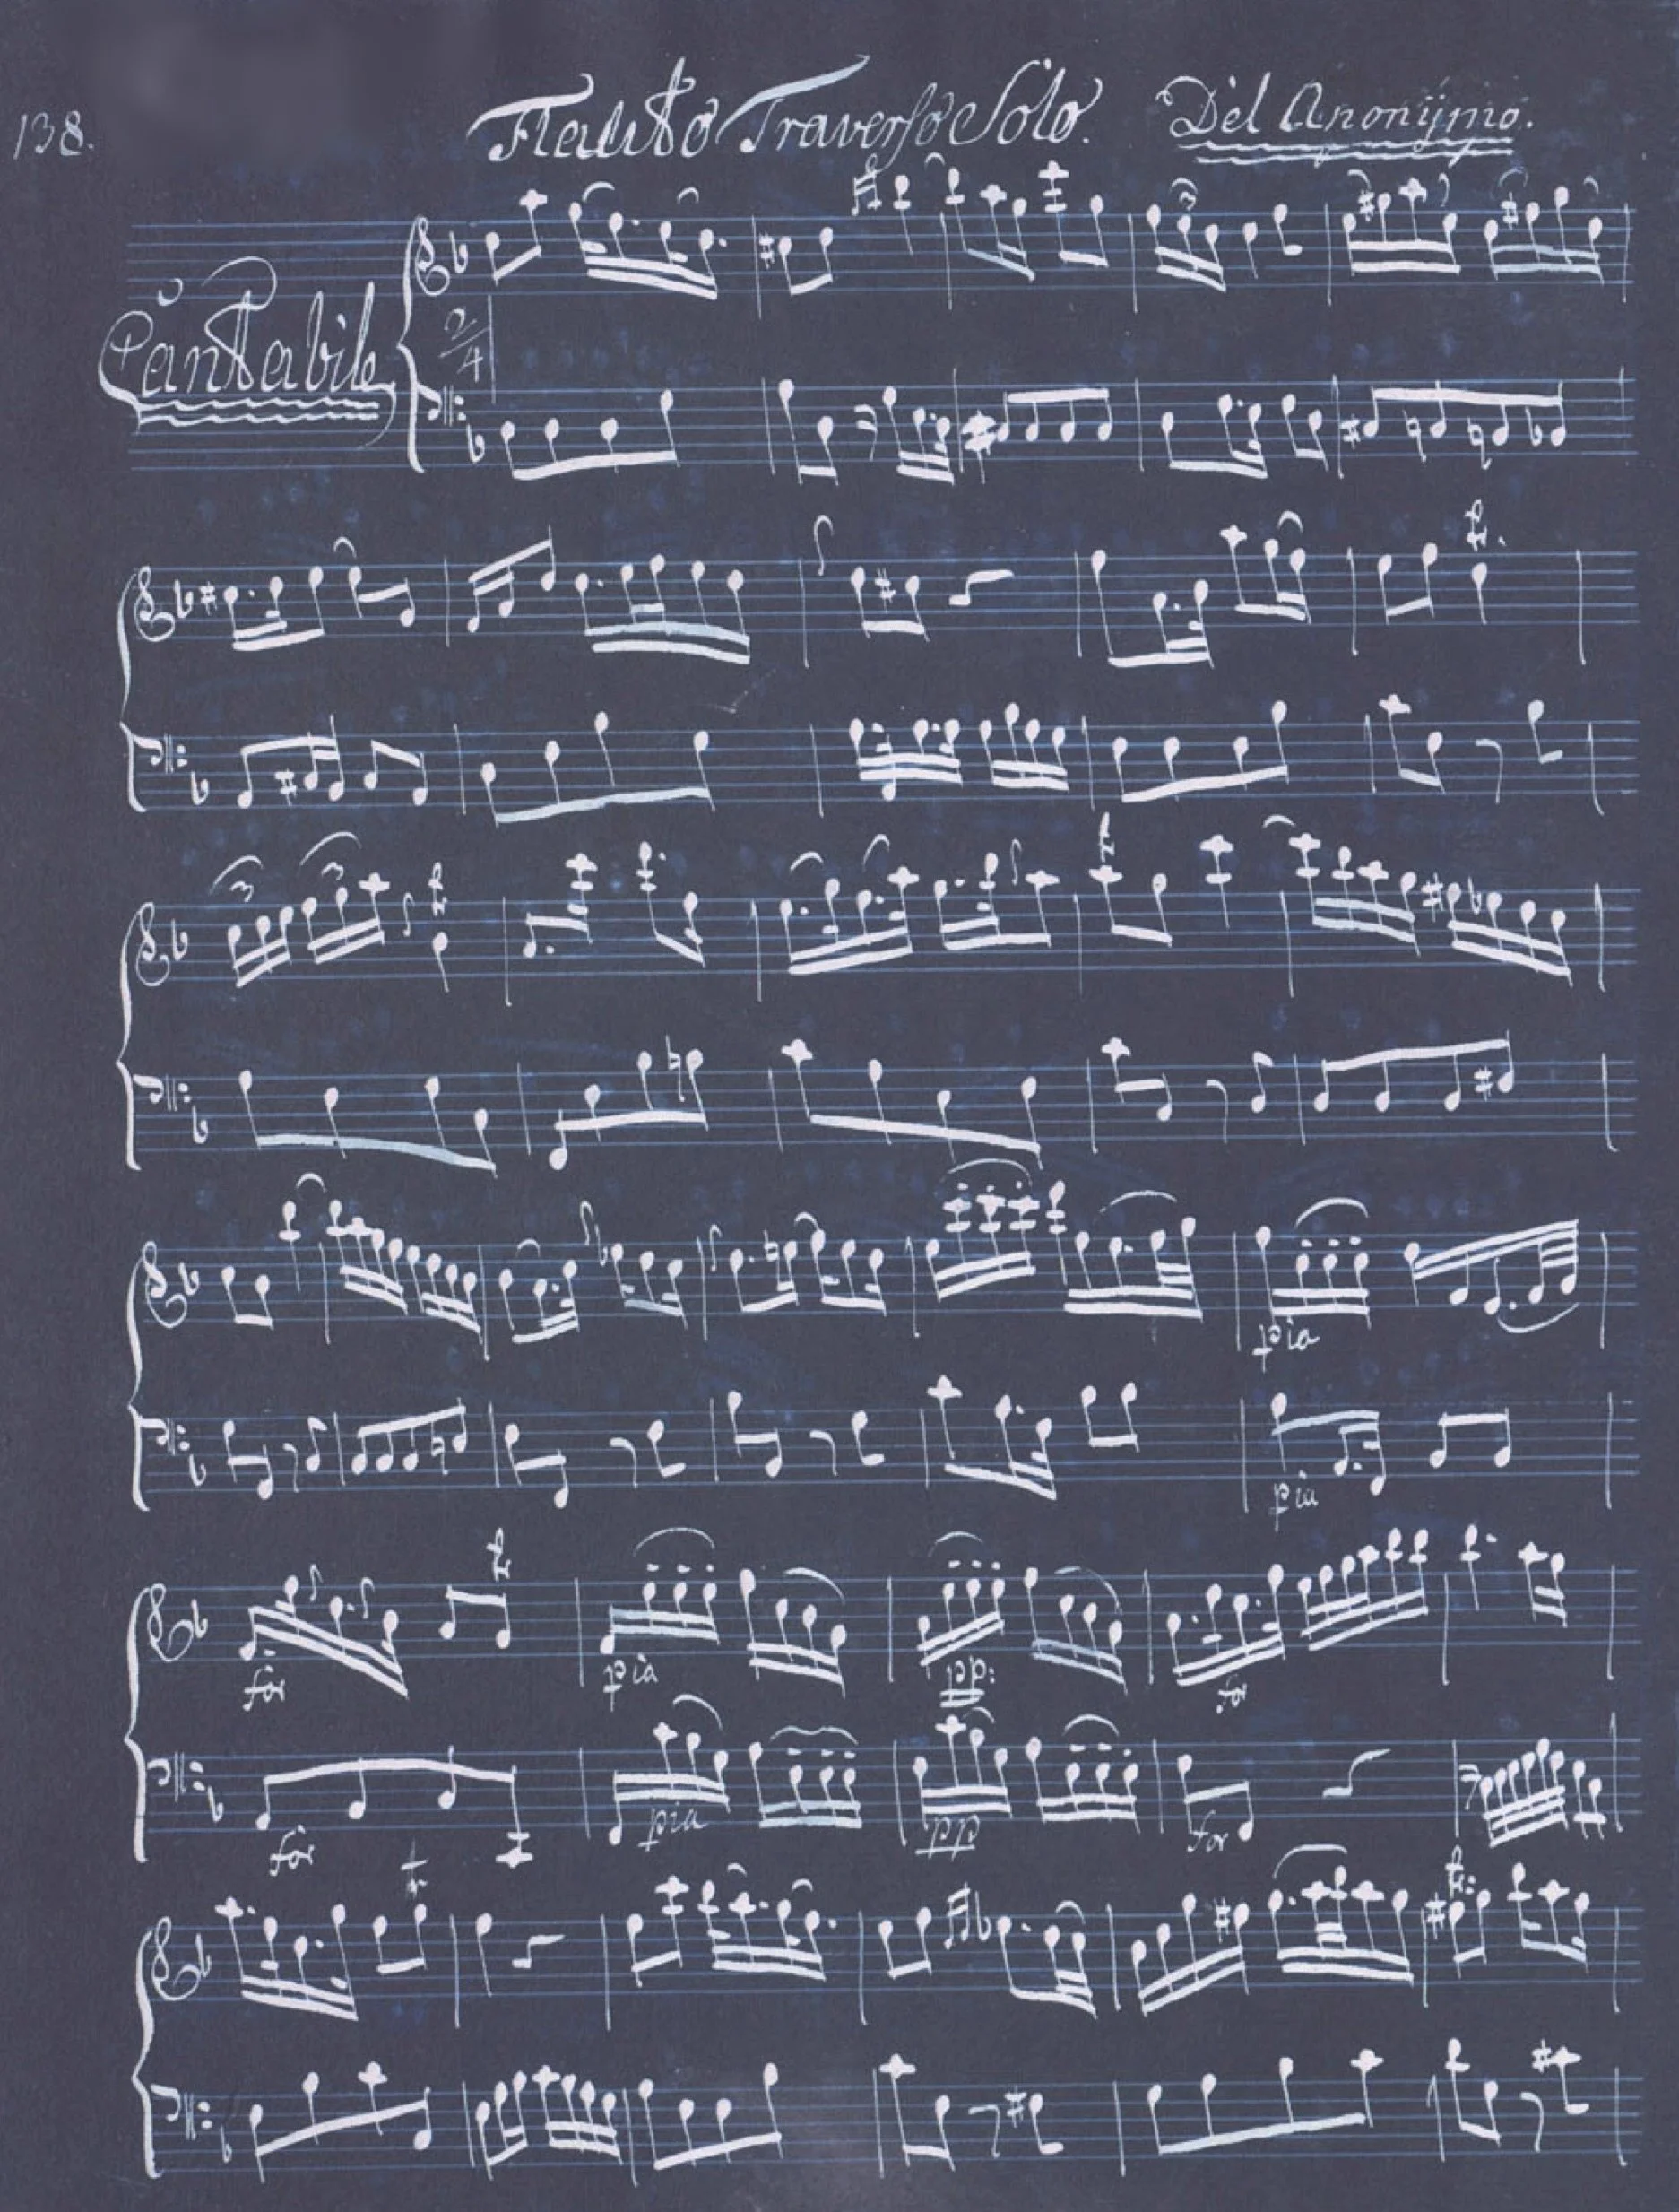 138.
Flauto Traverso Solo. Del Anonÿmo.
3
Cantabile
2/4
t.
3 3 t
t
pia
pia
t
for pia pp: for
for pia pp for
t
t: